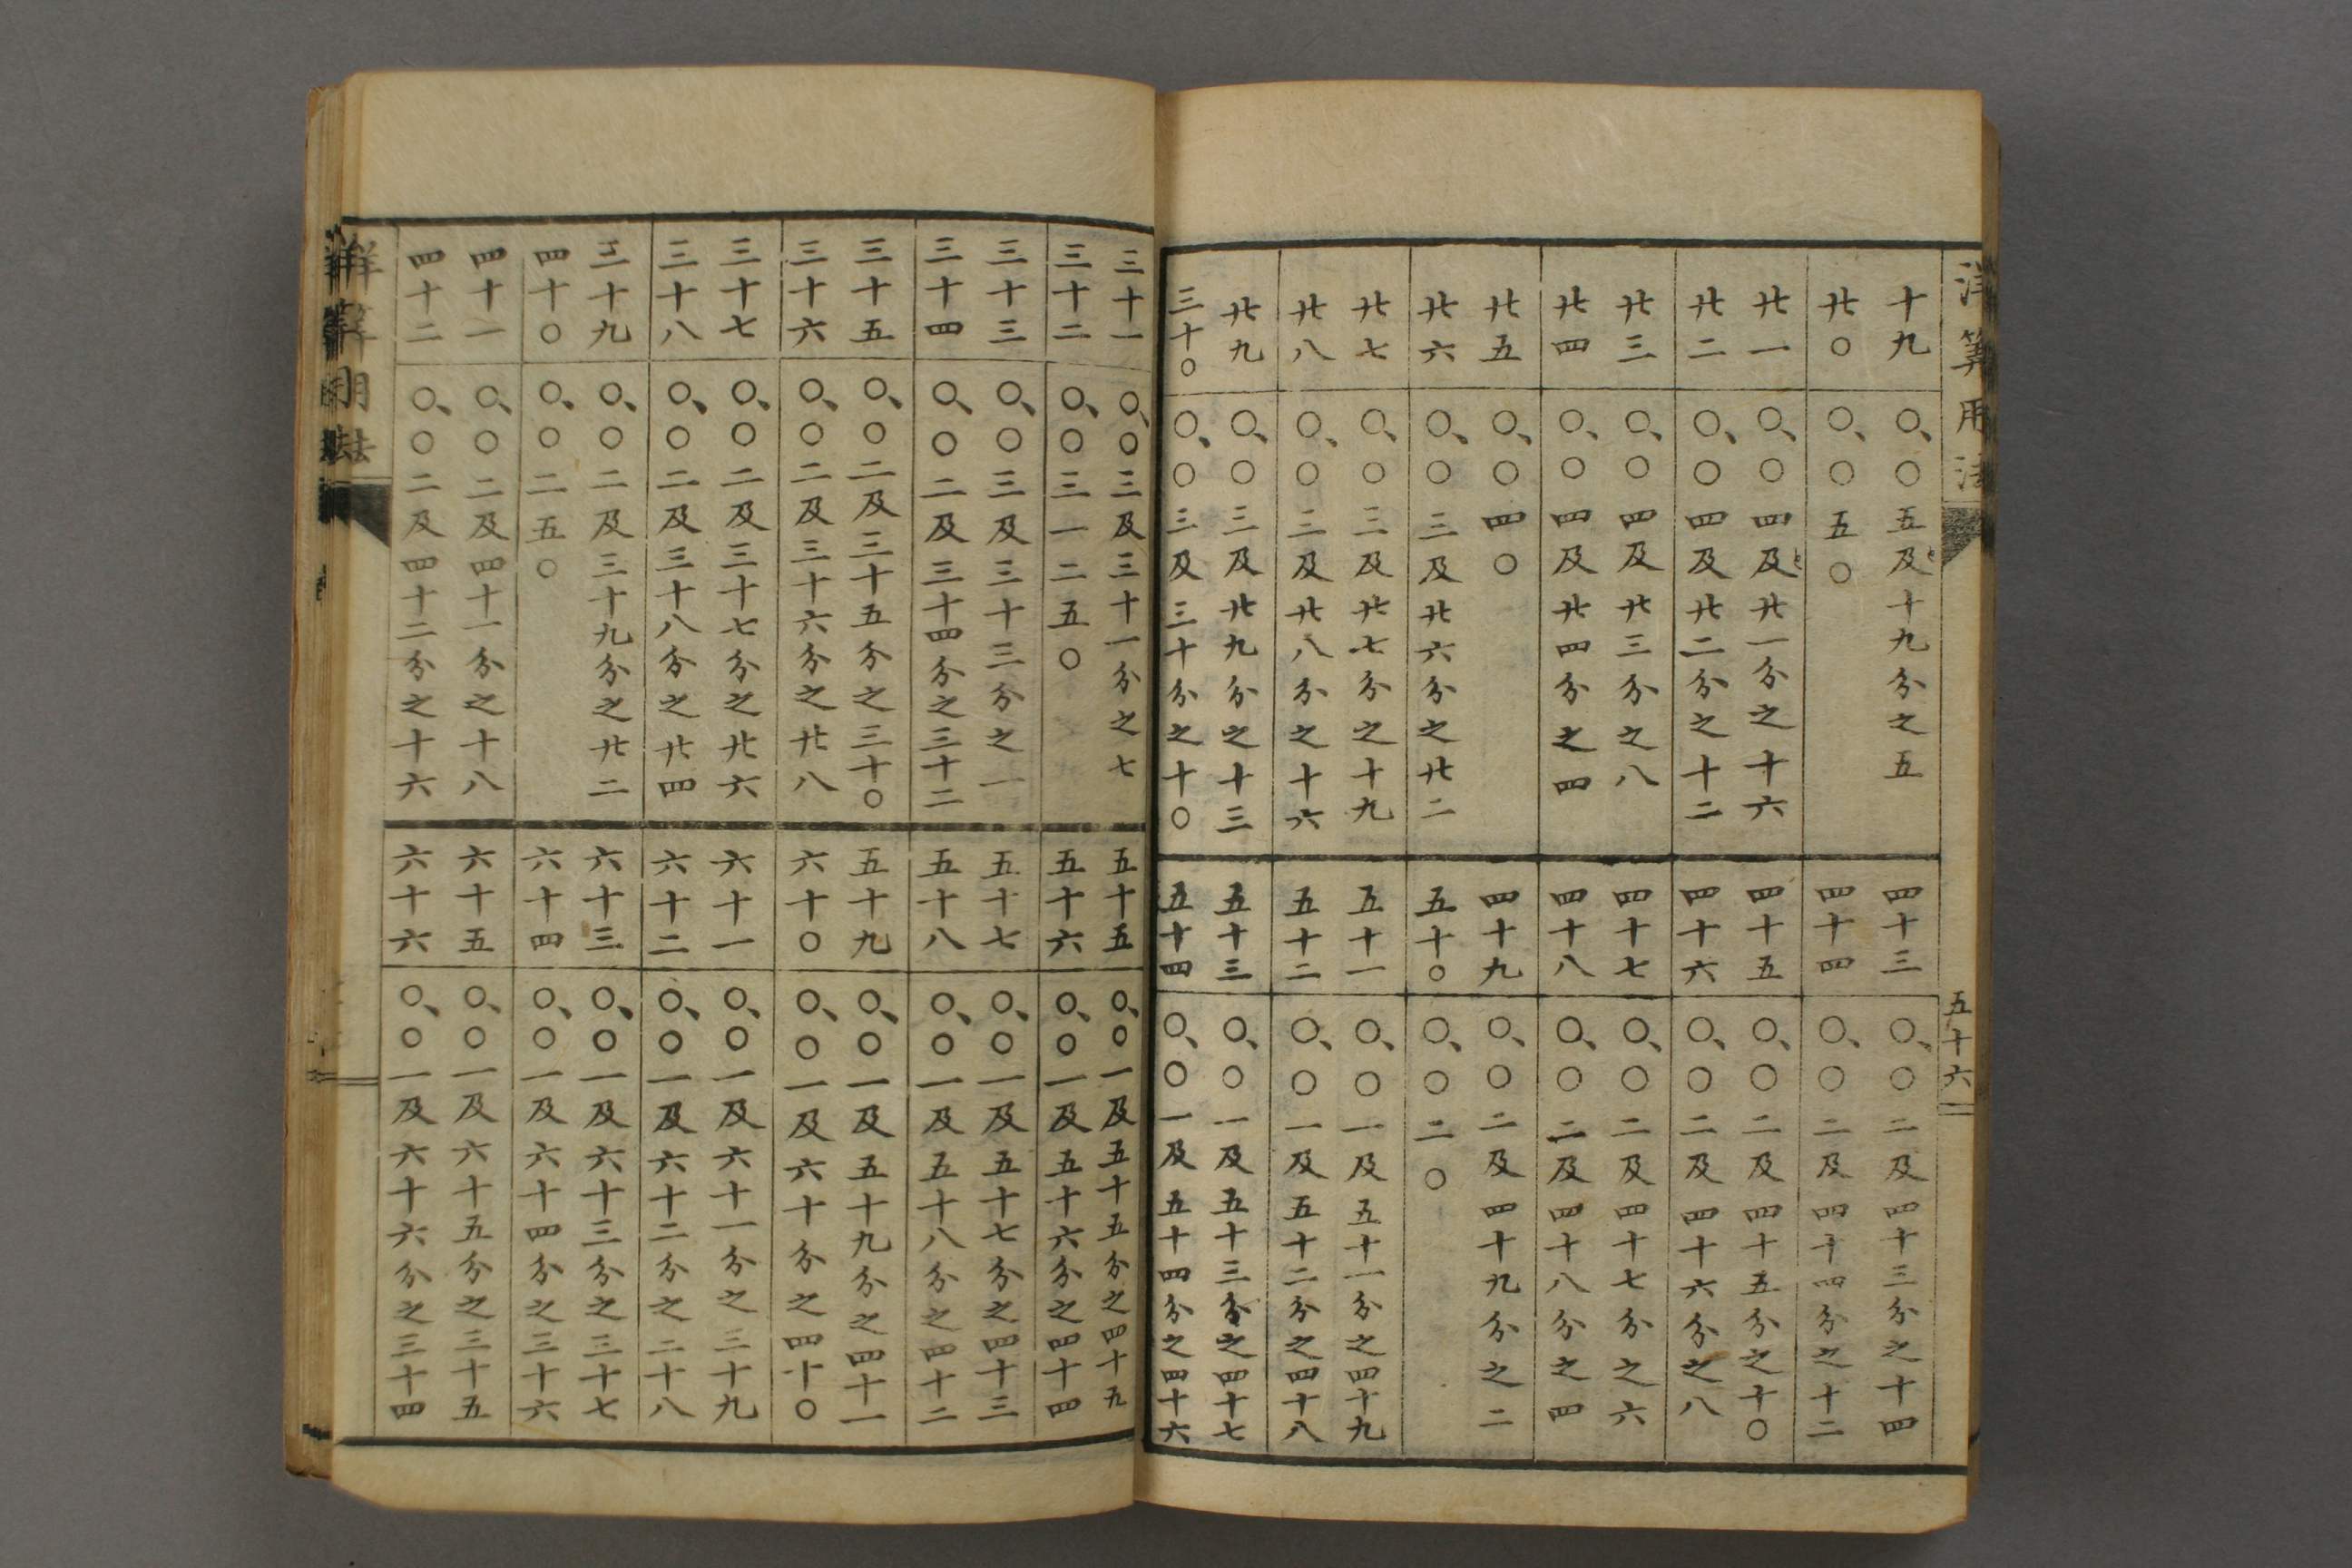 洋筭用法 五十六
十九 〇、〇五及と十九分之五
廿〇 〇、〇五〇
廿一 〇、〇四及と廿一分之十六
廿二 〇、〇四及廿二分之十二
廿三 〇、〇四及廿三分之八
廿四 〇、〇四及廿四分之四
廿五 〇、〇四〇
廿六 〇、〇三及廿六分之廿二
廿七 〇、〇三及廿七分之十九
廿八 〇、〇三及廿八分之十六
廿九 〇、〇三及廿九分之十三
三十〇 〇、〇三及三十分之十〇
四十三 〇、〇二及四十三分之十四
四十四 〇、〇二及四十四分之十二
四十五 〇、〇二及四十五分之十〇
四十六 〇、〇二及四十六分之八
四十七 〇、〇二及四十七分之六
四十八 〇、〇二及四十八分之四
四十九 〇、〇二及四十九分之二
五十〇 〇、〇二〇
五十一 〇、〇一及五十一分之四十九
五十二 〇、〇一及五十二分之四十八
五十三 〇、〇一及五十三分之四十七
五十四 〇、〇一及五十四分之四十六
三十一 〇、〇三及三十一分之七
三十二 〇、〇三一二五〇
三十三 〇、〇三及三十三分之一
三十四 〇、〇二及三十四分之三十二
三十五 〇、〇二及三十五分之三十〇
三十六 〇、〇二及三十六分之廿八
三十七 〇、〇二及三十七分之廿六
三十八 〇、〇二及三十八分之廿四
三十九 〇、〇二及三十九分之廿二
四十〇 〇、〇二五〇
四十一 〇、〇二及四十一分之十八
四十二 〇、〇二及四十二分之十六
五十五 〇、〇一及五十五分之四十九
五十六 〇、〇一及五十六分之四十四
五十七 〇、〇一及五十七分之四十三
五十八 〇、〇一及五十八分之四十二
五十九 〇、〇一及五十九分之四十一
六十〇 〇、〇一及六十分之四十〇
六十一 〇、〇一及六十一分之三十九
六十二 〇、〇一及六十二分之二十八
六十三 〇、〇一及六十三分之三十七
六十四 〇、〇一及六十四分之三十六
六十五 〇、〇一及六十五分之三十五
六十六 〇、〇一及六十六分之三十四
洋筭用法